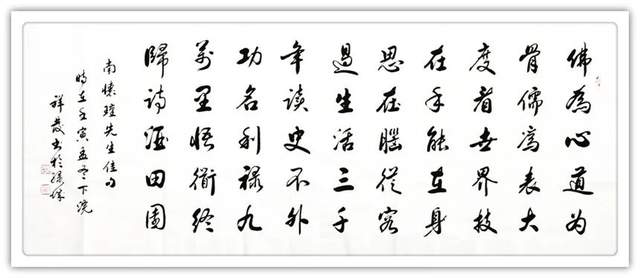 佛為心道为
骨儒為表大
度看世界技
在手能在身
思在腦從容
過生活三千
年读史不外
功名利禄九
萬里悟衜终
歸诗酒田園
南懷瑾先生佳句
時在壬寅孟冬下浣
祥發书於